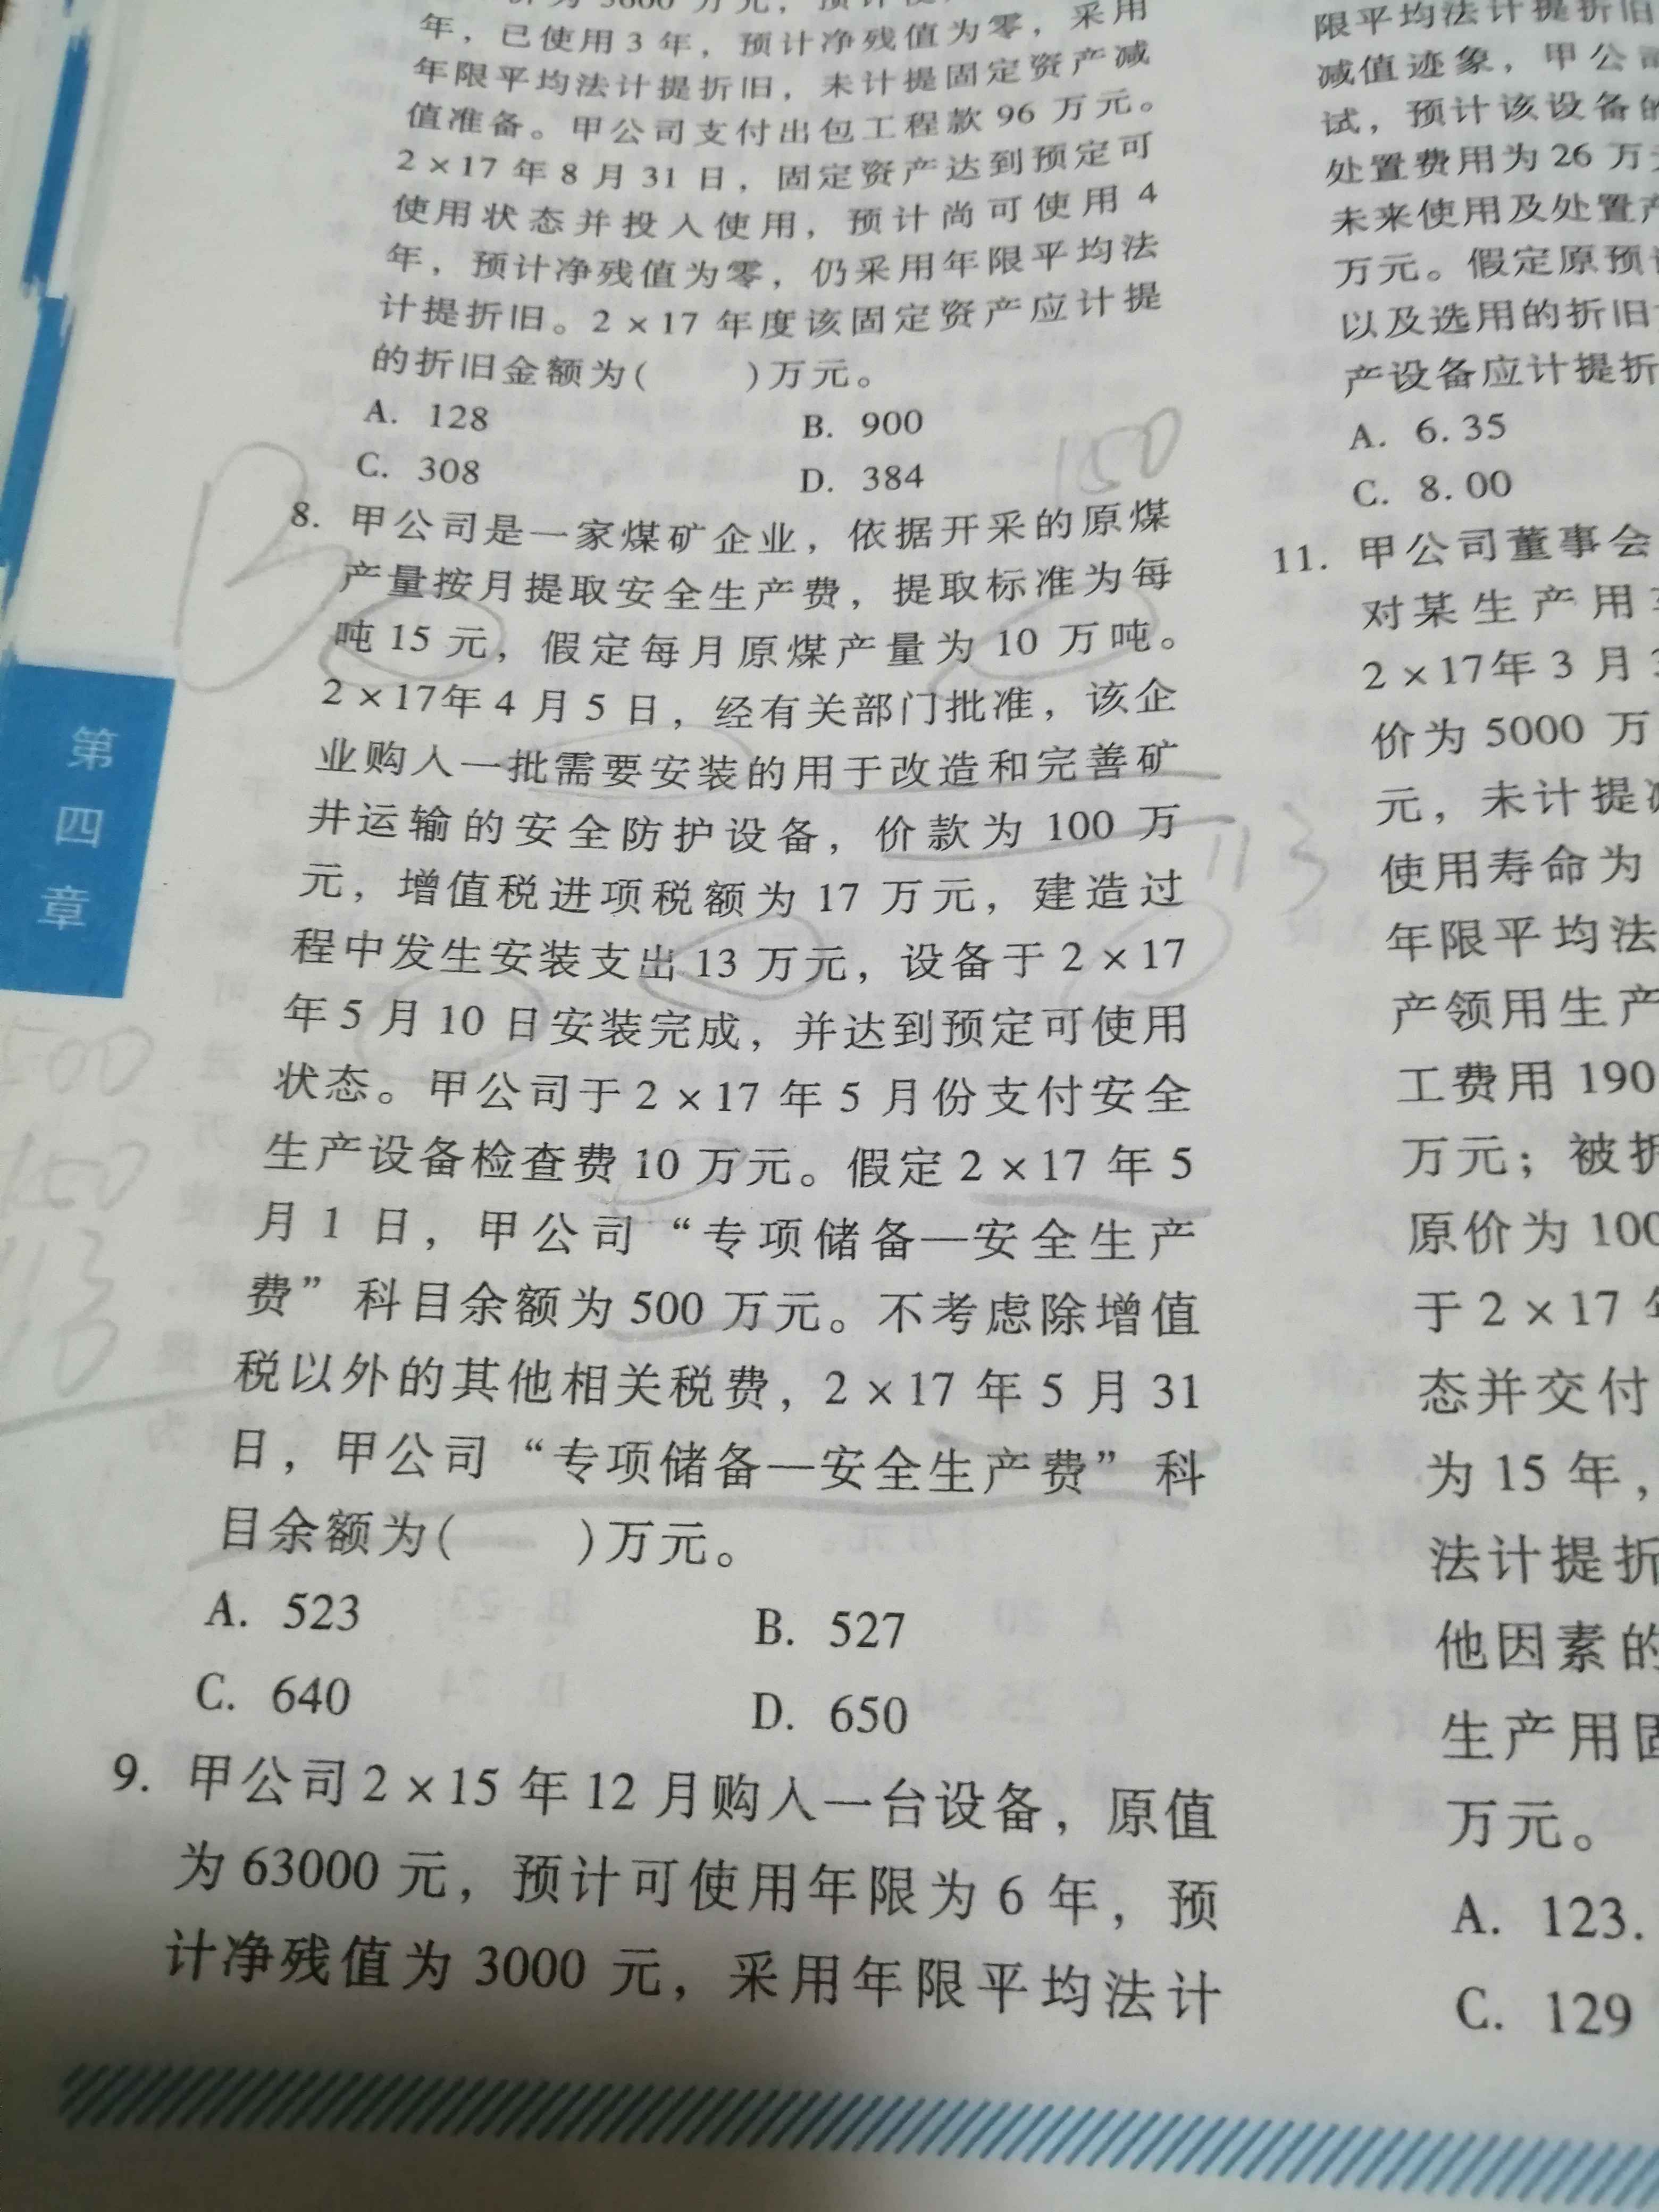 年，已使用3年，预计净残值为零，采用
年限平均法计提折旧，未计提固定资产减
值准备。甲公司支付出包工程款96万元。
2×17年8月31日，固定资产达到预定可
使用状态并投入使用，预计尚可使用4
年，预计净残值为零，仍采用年限平均法
计提折旧。2×17年度该固定资产应计提
的折旧金额为(　　)万元。
A. 128　B. 900
C. 308　D. 384
150
8. 甲公司是一家煤矿企业，依据开采的原煤
产量按月提取安全生产费，提取标准为每
吨15元，假定每月原煤产量为10万吨。
2×17年4月5日，经有关部门批准，该企
业购入一批需要安装的用于改造和完善矿
井运输的安全防护设备，价款为100万
元，增值税进项税额为17万元，建造过
程中发生安装支出13万元，设备于2×17
年5月10日安装完成，并达到预定可使用
状态。甲公司于2×17年5月份支付安全
生产设备检查费10万元。假定2×17年5
月1日，甲公司“专项储备—安全生产
费”科目余额为500万元。不考虑除增值
税以外的其他相关税费，2×17年5月31
日，甲公司“专项储备—安全生产费”科
目余额为(　　)万元。
A. 523　B. 527
C. 640　D. 650
113
500
150
9. 甲公司2×15年12月购入一台设备，原值
为63000元，预计可使用年限为6年，预
计净残值为3000元，采用年限平均法计
第
四
章
限平均法计提折旧
减值迹象，甲公
试，预计该设备的
处置费用为26万
未来使用及处置
万元。假定原预
以及选用的折旧
产设备应计提折
A. 6.35
C. 8.00
11. 甲公司董事会
对某生产用
2×17年3月
价为5000万
元，未计提
使用寿命为
年限平均法
产领用生产
工费用190
万元；被拆
原价为100
于2×17
态并交付
为15年，
法计提折
他因素的
生产用固
万元。
A. 123.
C. 129